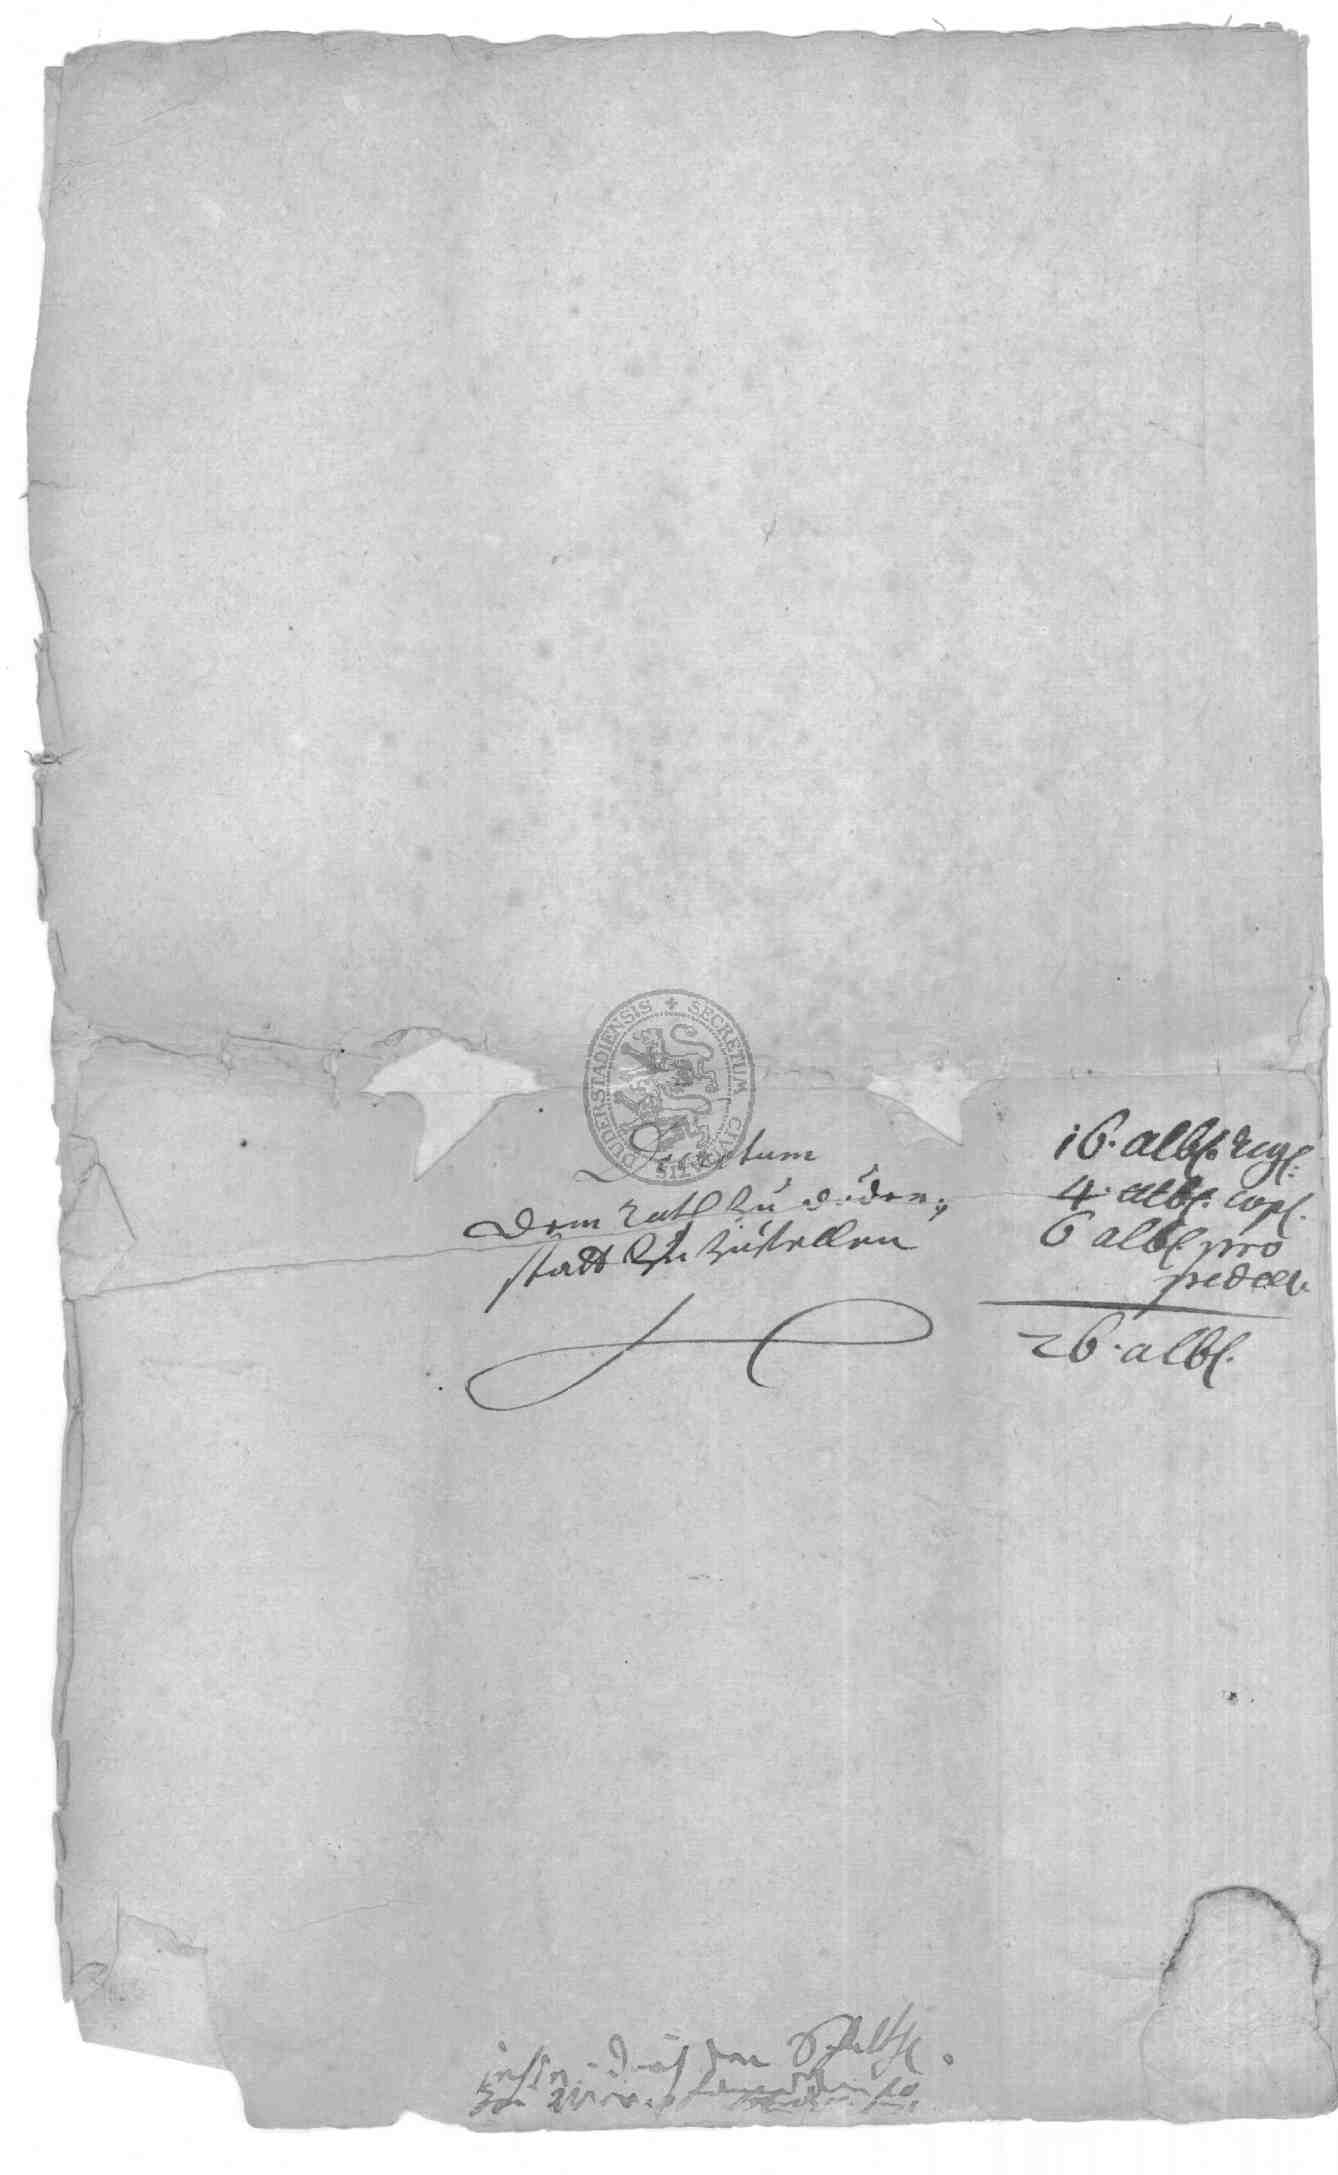 SECRETUM CIVITATIS DUDERSTADIENSIS
Decretum
Dem Rath zu Duder,
statt zu zustellen
16. alb. regl.
4. alb. copl.
6 alb. pro
pedell.
26. alb.